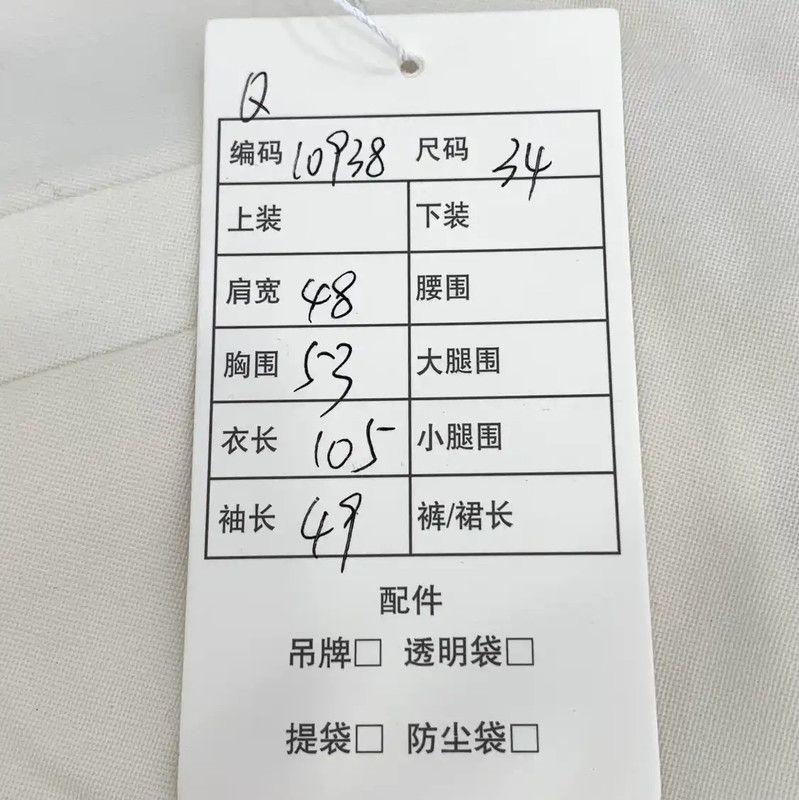 Q
编码 10938 尺码 34
上装 下装
肩宽 48 腰围
胸围 53 大腿围
衣长 105 小腿围
袖长 49 裤/裙长
配件
吊牌□ 透明袋□
提袋□ 防尘袋□